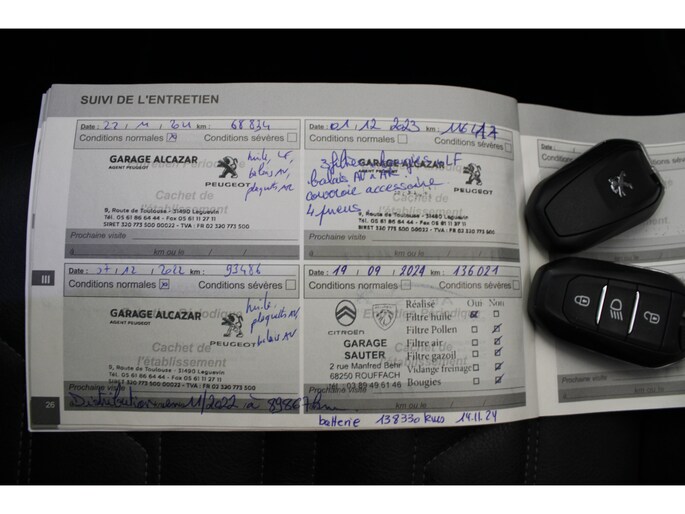 SUIVI DE L'ENTRETIEN
Date : 22 11 2021 km : 68834
Conditions normales Conditions sévères
GARAGE ALCAZAR
AGENT PEUGEOT
PEUGEOT
huile, LF,
balais AV,
plaquettes AR
Cachet de
l'établissement
9, Route de Toulouse - 31490 Leguevin
Tél. 05 61 86 64 44 - Fax 05 61 11 27 11
SIRET 320 773 500 00022 - TVA : FR 02 320 773 500
Prochaine visite
à km ou le / /
Date : 01 12 2023 km : 116417
Conditions normales Conditions sévères
GARAGE ALCAZAR
AGENT PEUGEOT
PEUGEOT
3 filtres LF
balais AV + AR
courroie accessoire
4 pneus
Cachet de
l'établissement
9, Route de Toulouse - 31490 Leguevin
Tél. 05 61 86 64 44 - Fax 05 61 11 27 11
SIRET 320 773 500 00022 - TVA : FR 02 320 773 500
Prochaine visite
à km ou le / /
III
Date : 07 12 2022 km : 93486
Conditions normales Conditions sévères
GARAGE ALCAZAR
AGENT PEUGEOT
PEUGEOT
huile,
plaquettes AV
balais AV
Cachet de
l'établissement
9, Route de Toulouse - 31490 Leguevin
Tél. 05 61 86 64 44 - Fax 05 61 11 27 11
SIRET 320 773 500 00022 - TVA : FR 02 320 773 500
Prochaine visite
Distribution 11/2022 à 89867 km
Date : 19 09 2024 km : 136021
Conditions normales Conditions sévères
CITROËN
GARAGE
SAUTER
2 rue Manfred Behr
68250 ROUFFACH
Tél. : 03 89 49 61 46
Réalisé Oui Non
Filtre huile
Filtre Pollen
Filtre air
Filtre gazoil
Vidange freinage
Bougies
Prochaine visite
km ou le / /
26
batterie 138330 kms 14.11.24